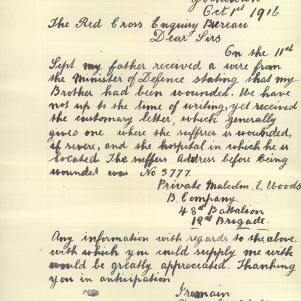 Oct 1st 1916
The Red Cross Enquiry Bereau
Dear Sirs
On the 11th
Sept my father received a wire from
the Minister of Defence stating that my
Brother had been wounded. We have
not up to the time of writing, yet received
the customary letter, which generally
gives one where the suffrer is wounded,
if severe, and the hospital in which he is
located. The suffers Address before being
wounded was No 3777.
Private Malcolm. E. Woods
B. Company
48th Battalion
12th Brigade.
Any information with regards to the above.
with which you could supply me with
would be greatly appreciated. Thanking
you in anticipation
I remain